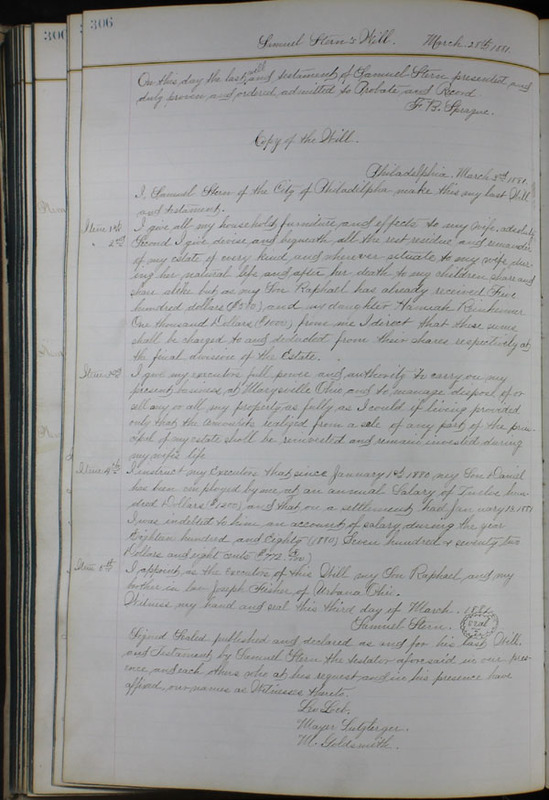 306
306
Samuel Stern's Will. March 28th, 1881.
On this day the last will and testament of Samuel Stern presented, and
duly proven and ordered admitted to Probate and Record
F. B. Sprague.
Copy of the Will.
Philadelphia, March 3rd, 1881.
I, Samuel Stern of the City of Philadelphia make this my last Will
and testament.
Item 1st I give all my household furniture and effects to my wife, absolutely
" 2nd Second I give devise, and bequeath, all the rest residue and remainder
of my estate of every kind, and wherever situate to my wife dur-
ing her natural life and after her death to my children share and
share alike but as my Son Raphael has already received Five
hundred dollars ($500) and my daughter Hannah
One thousand Dollars ($1000) from me I direct that these sums
shall be charged to and deducted from their shares respectively at
the final division of the Estate.
Item 3rd I give my executors full power and authority to carry on my
present business, at Marysville Ohio, and to manage dispose of or
sell any or all my property as fully as I could if living provided
only that the amounts realized from a sale of any part of the prin-
cipal of my estate shall be reinvested and remain invested during
my wife's life
Item 4th I instruct my Executors that since January 1st 1880, my Son Daniel
has been employed by me at an annual Salary of Twelve hun-
dred Dollars ($1200) and that on a settlement had January 1881
I was indebted to him on account of salary during the year
Eighteen hundred and Eighty (1880) Seven hundred & seventy two
Dollars and eight cents
Item 5th I appoint as the Executors of this Will my Son Raphael and my
brother in law Joseph Fisher of Urbana Ohio.
Witness my hand and seal this third day of March. 1881.
Samuel Stern. Seal
Signed Sealed published and declared as and for his last Will.
and testament by Samuel Stern the testator aforesaid in our pres-
ence, and each others who at his request and in his presence have
affixed, our names as Witnesses thereto.
Leo Loeb,
Mayer Sulzberger.
M. Goldsmith.